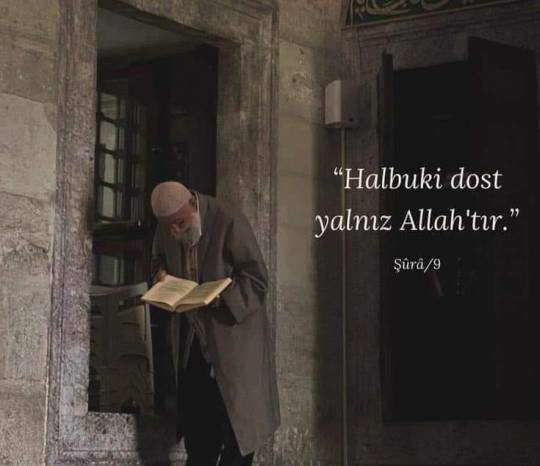 “Halbuki dost
yalnız Allah'tır.”
Şûrâ/9